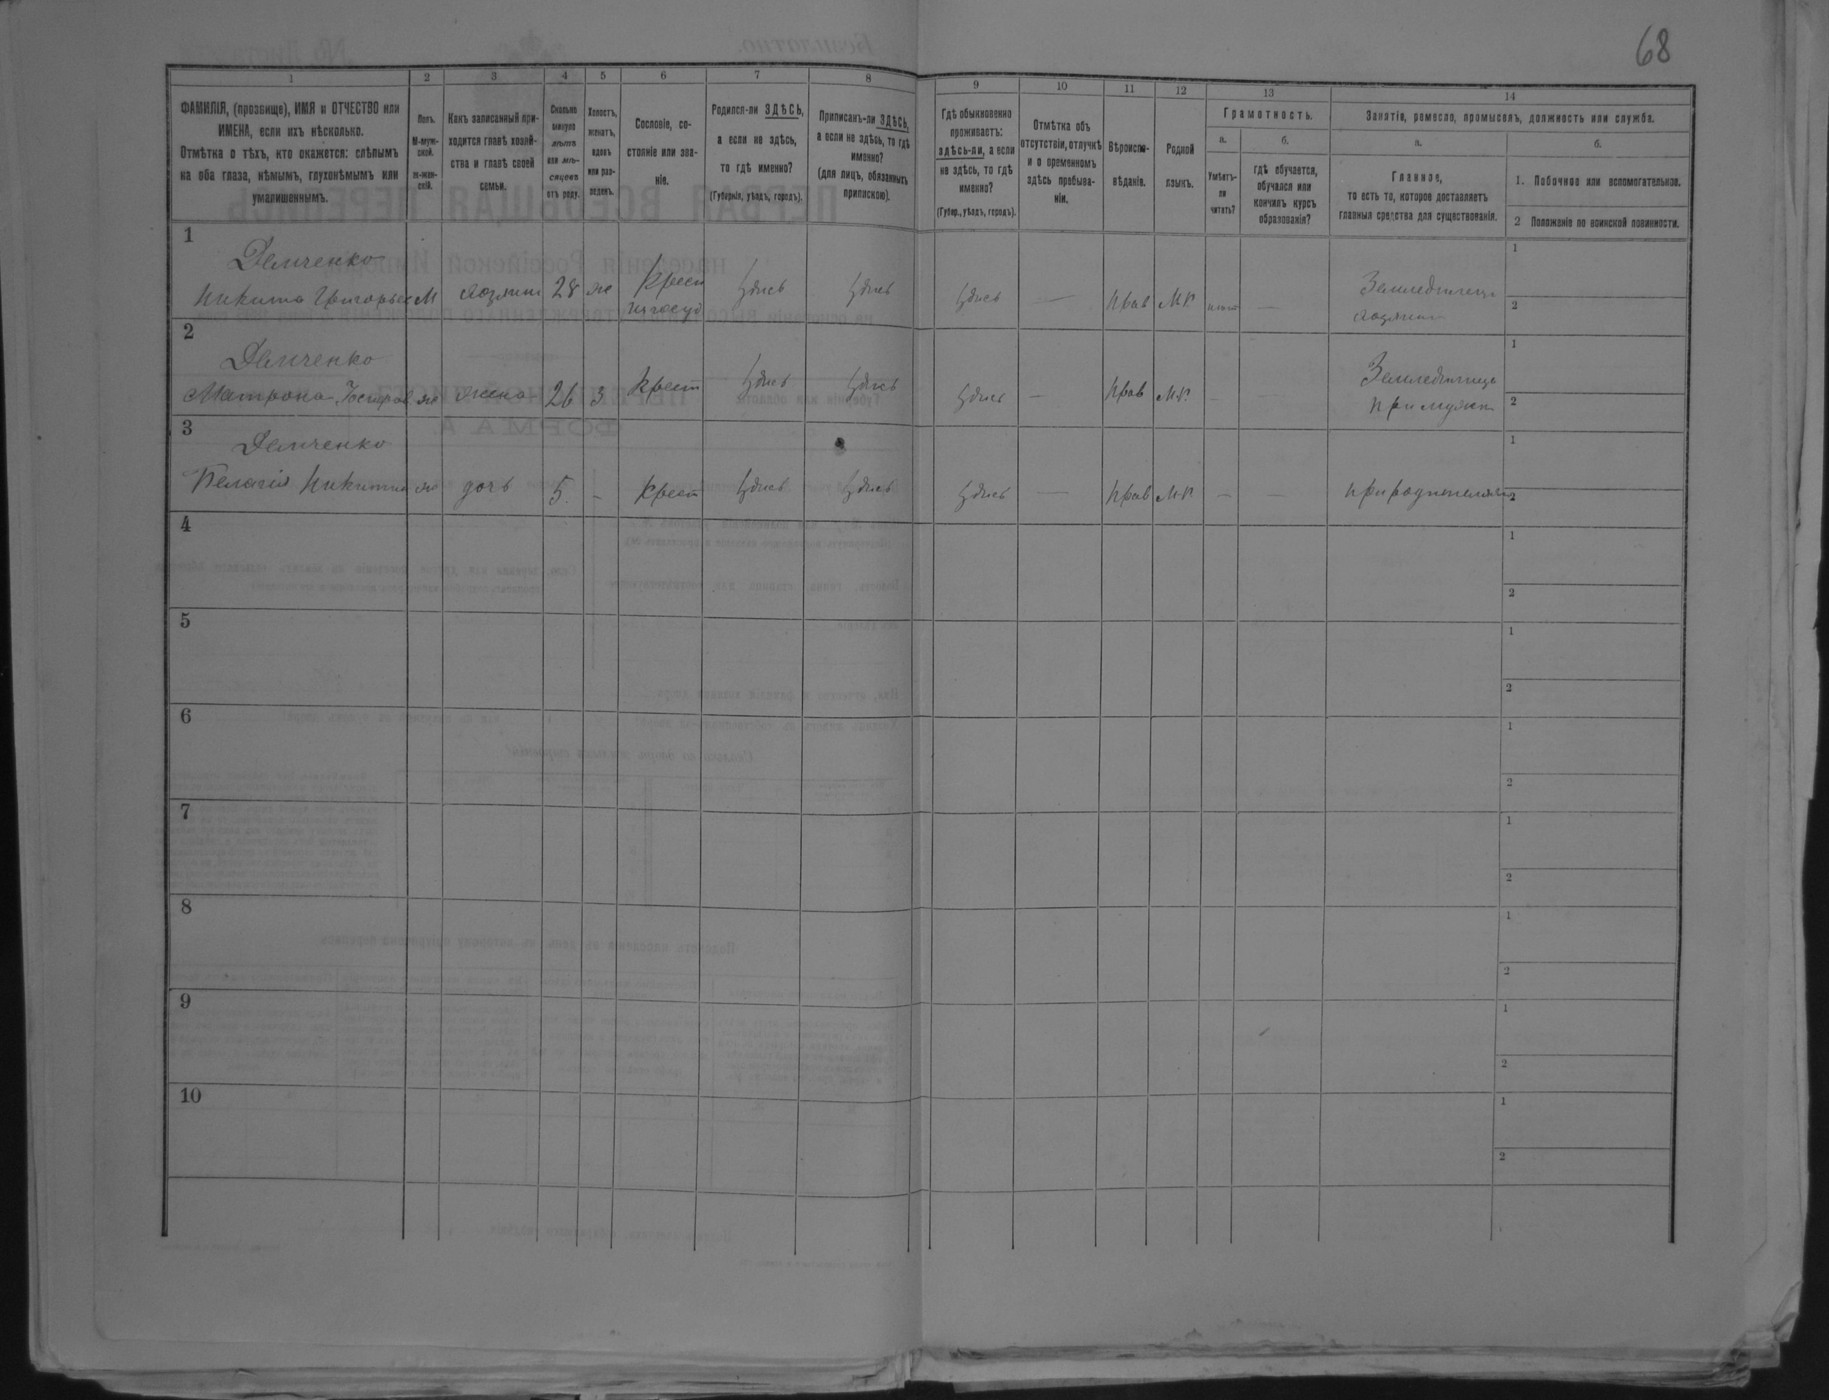 68
1 2 3 4 5 6 7 8 9 10 11 12 13 14
ФАМИЛІЯ, (прозвище), ИМЯ и ОТЧЕСТВО или
ИМЕНА, если ихъ нѣсколько.
Отмѣтка о тѣхъ, кто окажется: слѣпымъ
на оба глаза, нѣмымъ, глухонѣмымъ или
умалишеннымъ.
Полъ.
М-муж-
ской.
ж-жен-
скій.
Какъ записанный при-
ходится главѣ хозяй-
ства и главѣ своей
семьи.
Сколько
минуло
лѣтъ
или мѣ-
сяцевъ
отъ роду.
Холостъ,
женатъ,
вдовъ
или раз-
веденъ.
Сословіе, со-
стояніе или зва-
ніе.
Родился-ли ЗДѢСЬ,
а если не здѣсь,
то гдѣ именно?
(Губернія, уѣздъ, городъ).
Приписанъ-ли ЗДѢСЬ,
а если не здѣсь, то гдѣ
именно?
(для лицъ, обязанныхъ
припискою).
Гдѣ обыкновенно
проживаетъ:
здѣсь-ли, а если
не здѣсь, то гдѣ
именно?
(Губер., уѣздъ, городъ).
Отмѣтка объ
отсутствіи, отлучкѣ
и о временномъ
здѣсь пребыва-
ніи.
Вѣроиспо-
вѣданіе.
Родной
языкъ.
Грамотность.
а.
Умѣетъ-
ли
читать?
б.
гдѣ обучается,
обучался или
кончилъ курсъ
образованія?
Занятіе, ремесло, промыселъ, должность или служба.
а.
Главное,
то есть то, которое доставляетъ
главныя средства для существованія.
б.
1. Побочное или вспомогательное.
2 Положеніе по воинской повинности.
1
Демченко
Никита Григорьев М хозяин 28 ж Крест из госуд здесь здесь здесь — прав М.Р. — Земледелец
хозяин
1
2
2
Демченко
Матрона ж жена 26 з крест здесь здесь здесь — прав М.Р. — — Земледелица
при муже
1
2
3
Демченко
Пелагия Никитина ж дочь 5 — крест здесь здесь здесь — прав М.Р. — — при родителях
1
2
4
1
2
5
1
2
6
1
2
7
1
2
8
1
2
9
1
2
10
1
2